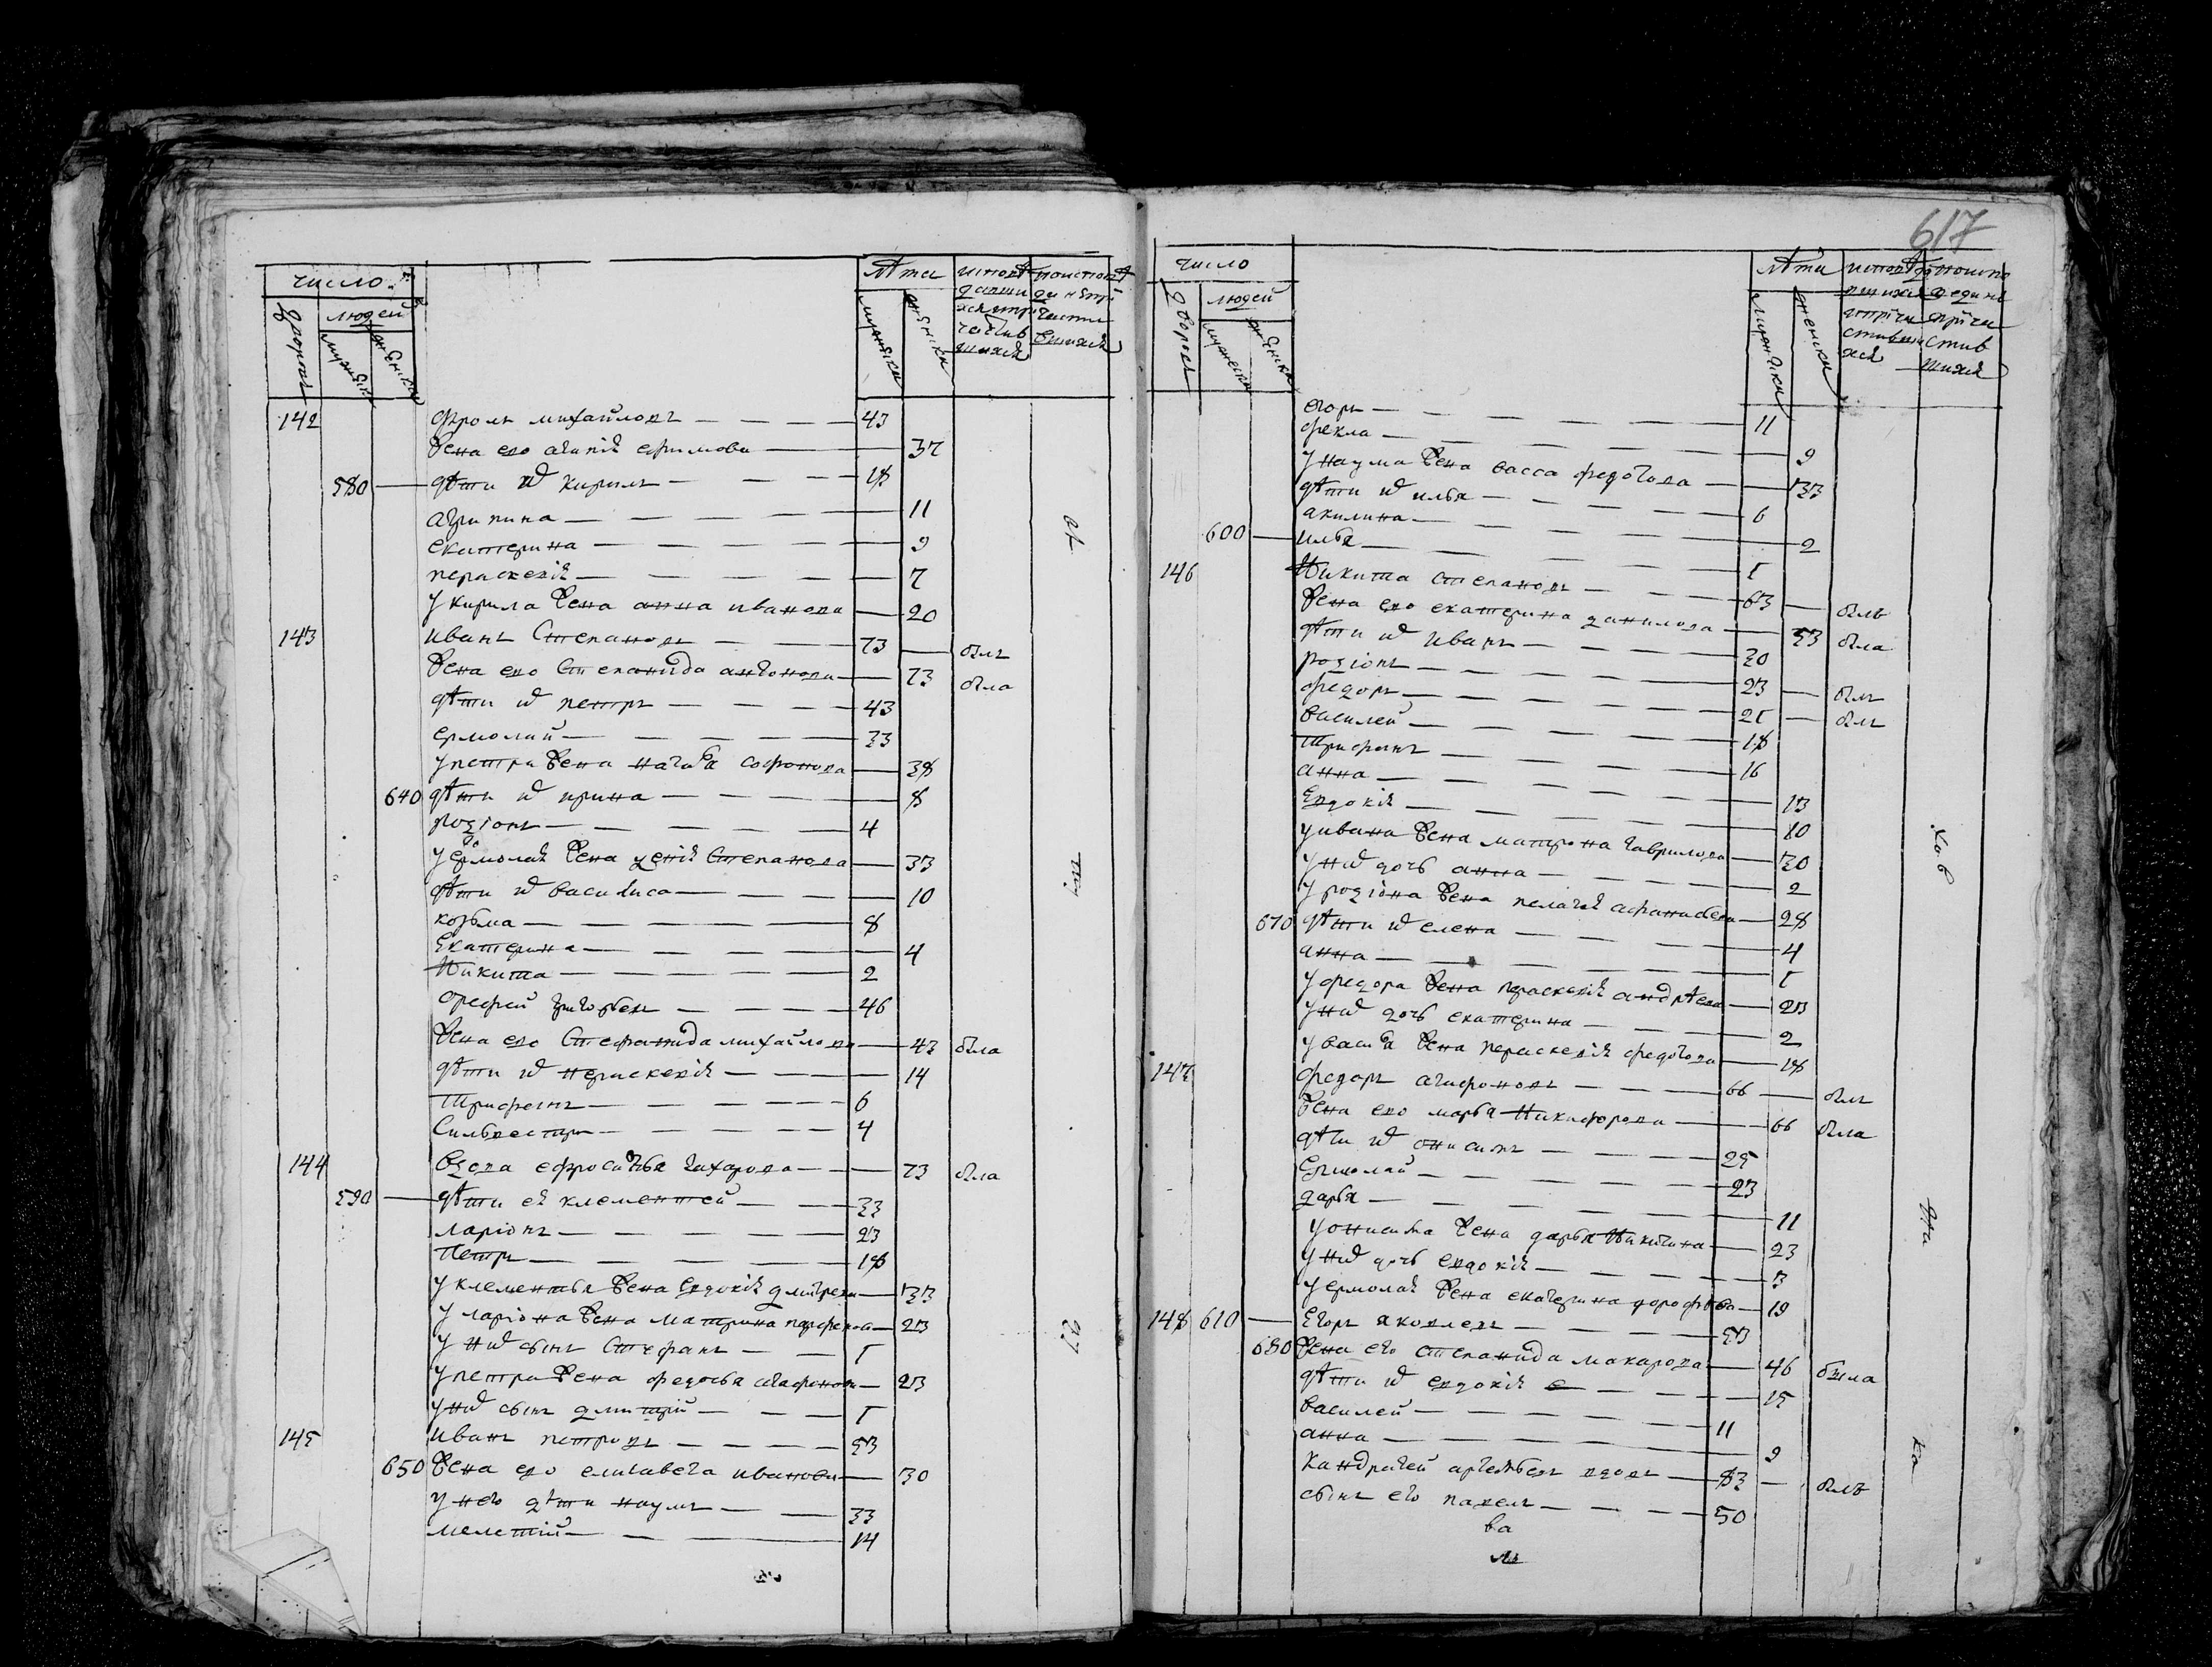 число
людей
дворовъ
мужеска
женска
лѣта
мужеска
женска
исповѣ
давши
хся и при
частив
шихся
142 Фролъ михайловъ — 43
жена ево агапiя ефимова — 37
580 — дѣти их кирилъ — 18
агрипина — 11
екатерина — 9
пераскевiя — 7
у кирила жена анна иванова — 20
143 иванъ Степановъ — 73 — былъ
жена ево Степанида антонова — 73 была
дѣти их петръ — 43
ермолай — 33
у петра жена наталья софонова — 38
640 дѣти их ирина — 8
родiонъ — 4
у ермолая жена ксенiя Степанова — 33
дѣти их василиса — 10
козьма — 8
Екатерина — 4
Никита — 2
орефей григорьевъ — 46
жена ево Стефанида михайлова — 43 была
дѣти их пераскевiя — 14
Трифонъ — 6
Силвестръ — 4
144 вдова ефросинья захарова — 73 была
590 — дѣти ея клементей — 33
ларiонъ — 23
Петръ — 18
у клементья жена Евдокiя дмитрева — 33
у ларiона жена матрона парфенова — 23
у них сынъ Стефанъ — 1
у петра жена федосья агафонова — 23
у них сынъ дмитрiй — 1
145 иванъ петровъ — 53
650 жена ево елисавета иванова — 30
у него дѣти наумъ — 33
мелетiй — 14
617
число
людей
дворовъ
мужеска
женска
лѣта
мужеска
женска
егоръ — 11
фекла — 9
у наума жена васса федотова — 33
дѣти их илья — 6
акилина — 2
600 — илья — 1
146 Никита степановъ — 63 — былъ
жена ево екатерина данилова — 53 была
дѣти их иванъ — 30
родiонъ — 23 — былъ
федоръ — 21 — былъ
василей — 18
трифонъ — 16
анна — 13
Евдокiя — 10
у ивана жена матрона гаврилова — 30
у них дочь анна — 2
у родiона жена пелагея афанасьева — 28
670 дѣти их елена — 4
анна — 1
у федора жена пераскевiя андрѣева — 23
у них дочь екатерина — 2
у василья жена пераскевiя федотова — 18
147 федоръ агафоновъ — 66 — былъ
жена ево марья Никифорова — 66 была
дѣти их онисимъ — 25
Ермолай — 23
дарья — 11
у онисима жена дарья Никитина — 23
у них дочь евдокiя — 3
у ермолая жена екатерина дорофѣева — 19
148 610 — Егоръ яковлевъ — 53
680 жена его степанида макарова — 46 была
дѣти их евдокiя — 15
василей — 11
анна — 9
Кандратей артемьевъ вдовъ — 83 — былъ
сынъ его павелъ — 50